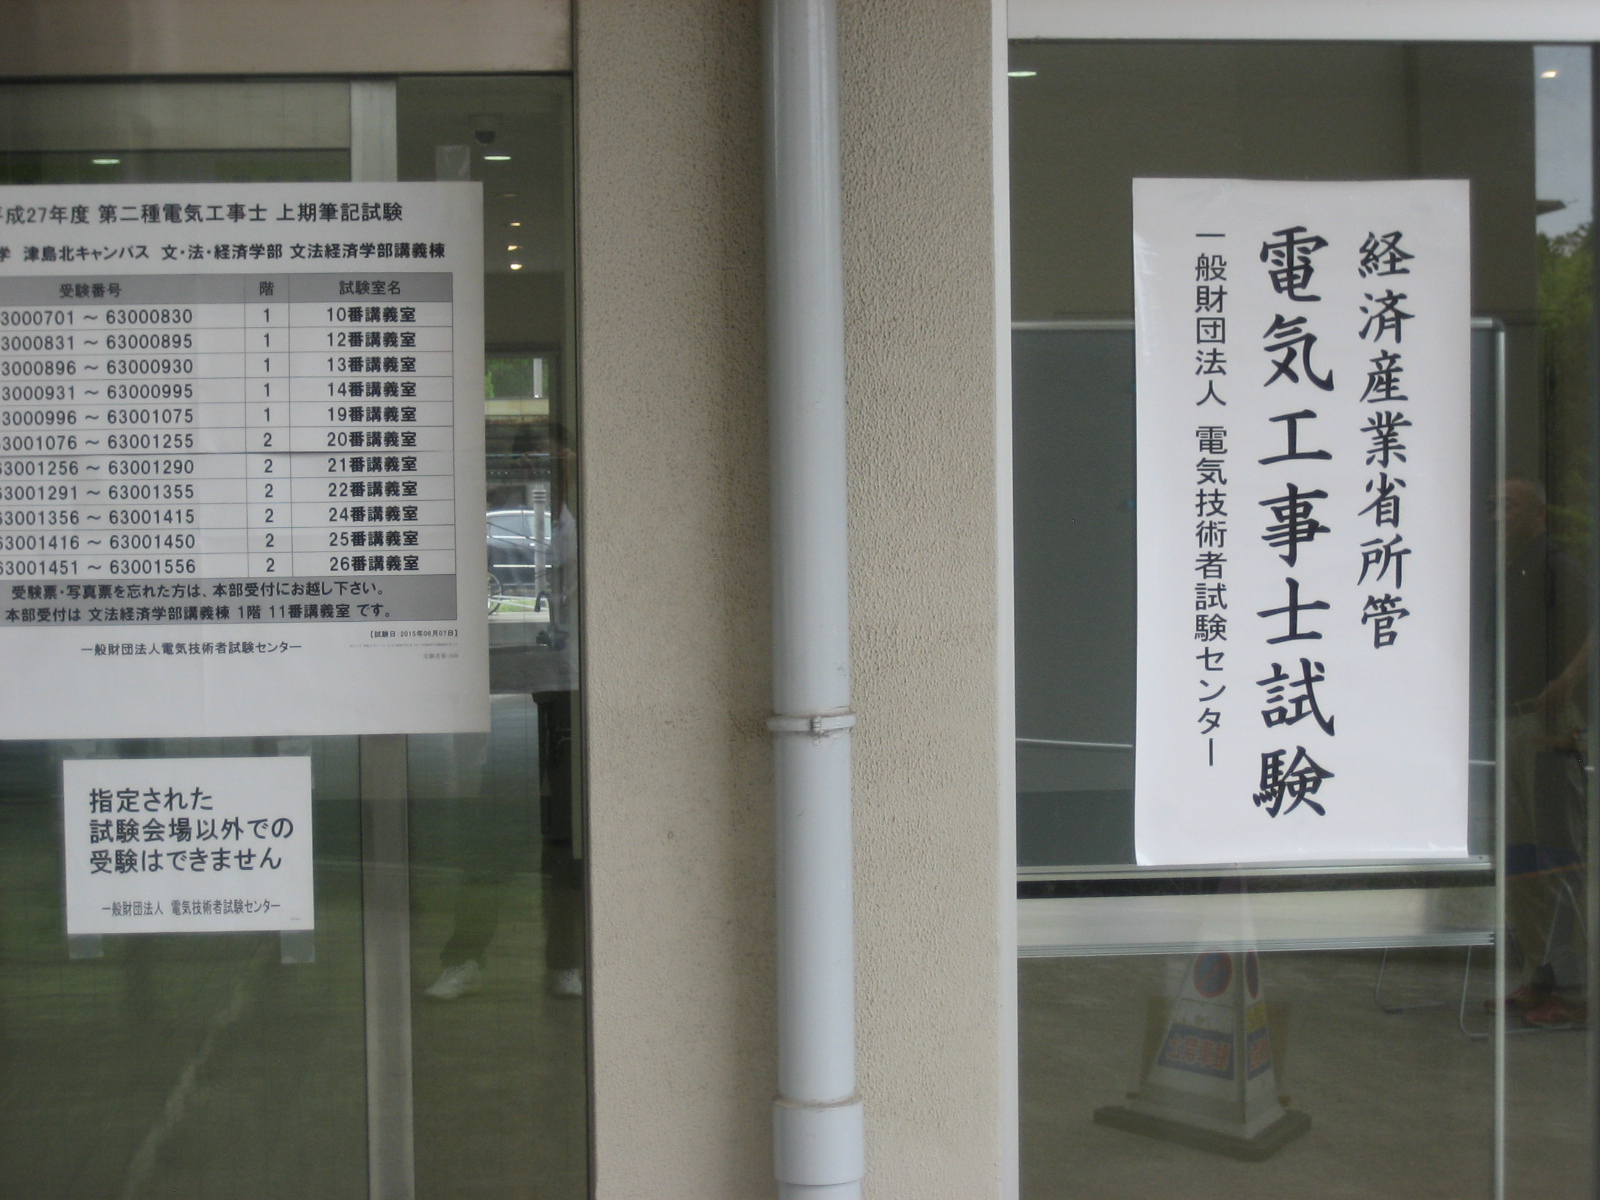 成27年度 第二種電気工事士 上期筆記試験
学 津島北キャンパス 文・法・経済学部 文法経済学部講義棟
受験番号 階 試験室名
3000701 ～ 63000830 1 10番講義室
3000831 ～ 63000895 1 12番講義室
3000896 ～ 63000930 1 13番講義室
3000931 ～ 63000995 1 14番講義室
3000996 ～ 63001075 1 19番講義室
63001076 ～ 63001255 2 20番講義室
63001256 ～ 63001290 2 21番講義室
63001291 ～ 63001355 2 22番講義室
63001356 ～ 63001415 2 24番講義室
63001416 ～ 63001450 2 25番講義室
63001451 ～ 63001556 2 26番講義室
受験票・写真票を忘れた方は、本部受付にお越し下さい。
本部受付は 文法経済学部講義棟 1階 11番講義室 です。
【試験日 2015年06月07日】
一般財団法人電気技術者試験センター
指定された
試験会場以外での
受験はできません
一般財団法人 電気技術者試験センター
経済産業省所管
電気工事士試験
一般財団法人 電気技術者試験センター